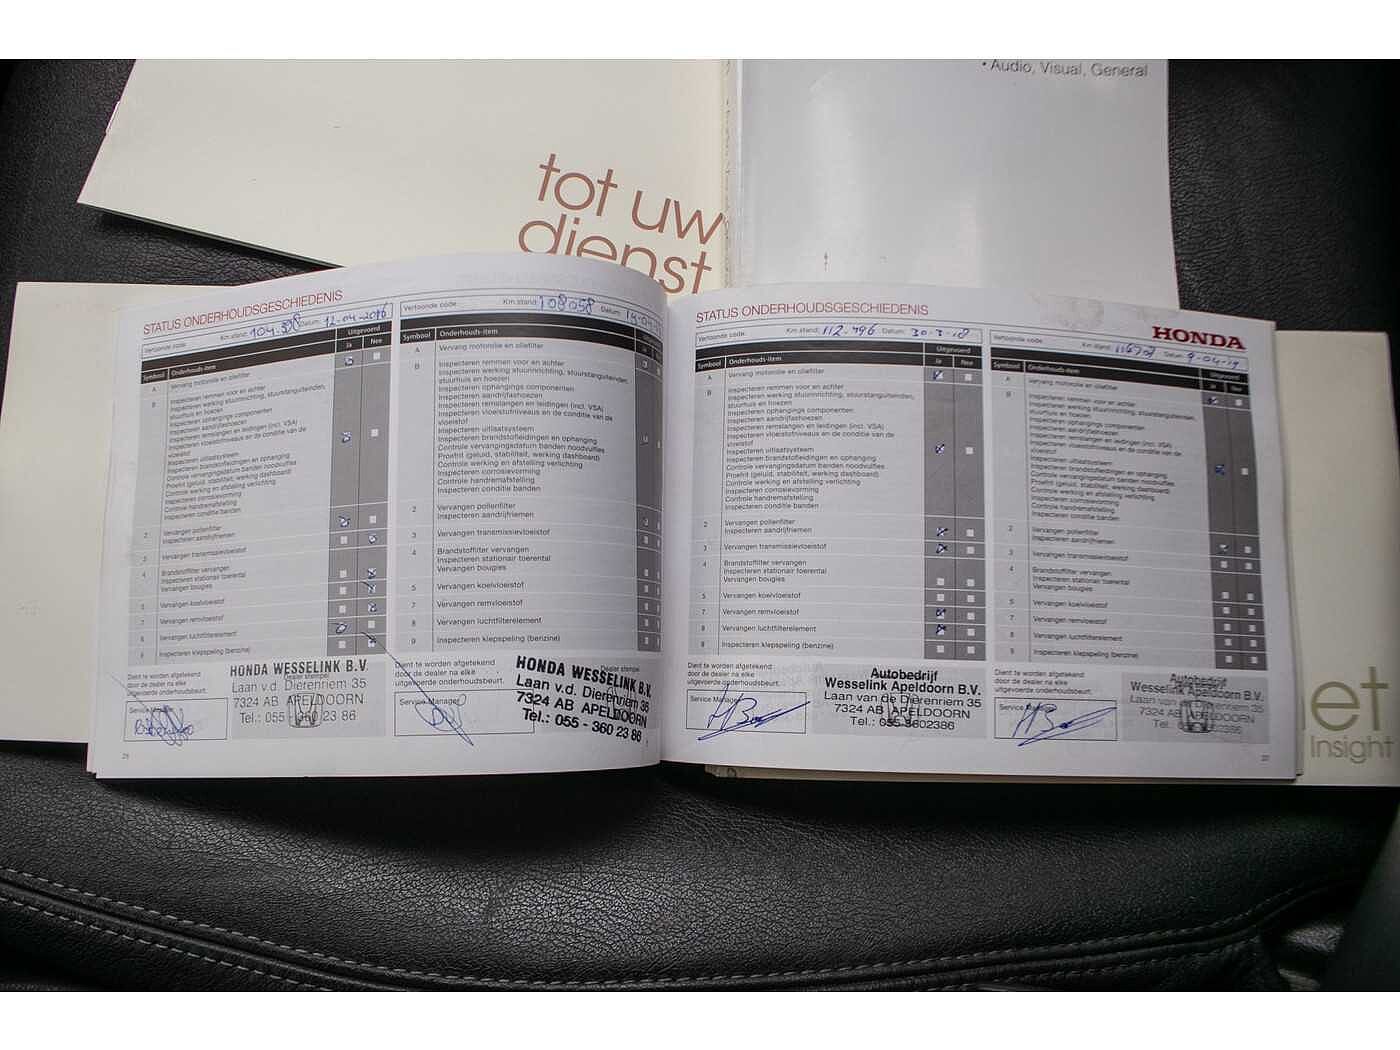 • Audio, Visual, General
tot uw
dienst
STATUS ONDERHOUDSGESCHIEDENIS
Vertoonde code: Km.stand: Datum: 12-04-2016
Symbool Onderhouds-item Uitgevoerd Ja Nee
A Vervang motorolie en oliefilter
B Inspecteren remmen voor en achter
Inspecteren werking stuurinrichting, stuurstanguiteinden,
stuurhuis en hoezen
Inspecteren ophangings componenten
Inspecteren aandrijfashoezen
Inspecteren remslangen en leidingen (incl. VSA)
Inspecteren vloeistofniveaus en de conditie van de
vloeistof
Inspecteren uitlaatsysteem
Inspecteren brandstofleidingen en ophanging
Controle vervangingsdatum banden noodvulfles
Proefrit (geluid, stabiliteit, werking dashboard)
Controle werking en afstelling verlichting
Inspecteren corrosievorming
Controle handremafstelling
Inspecteren conditie banden
2 Vervangen pollenfilter
Inspecteren aandrijfriemen
3 Vervangen transmissievloeistof
4 Brandstoffilter vervangen
Inspecteren stationair toerental
Vervangen bougies
Vervangen koelvloeistof
Vervangen remvloeistof
Vervangen luchtfilterelement
Inspecteren klepspeling (benzine)
Dient te worden afgetekend
door de dealer na elke
uitgevoerde onderhoudsbeurt.
Dealer stempel
Service Manager
HONDA WESSELINK B.V.
Laan v.d. Dierenriem 35
7324 AB APELDOORN
Tel.: 055 - 360 23 86
Vertoonde code: Km.stand: 108058 Datum:
Symbool Onderhouds-item
A Vervang motorolie en oliefilter
B Inspecteren remmen voor en achter
Inspecteren werking stuurinrichting, stuurstanguiteinden,
stuurhuis en hoezen
Inspecteren ophangings componenten
Inspecteren aandrijfashoezen
Inspecteren remslangen en leidingen (incl. VSA)
Inspecteren vloeistofniveaus en de conditie van de
vloeistof
Inspecteren uitlaatsysteem
Inspecteren brandstofleidingen en ophanging
Controle vervangingsdatum banden noodvulfles
Proefrit (geluid, stabiliteit, werking dashboard)
Controle werking en afstelling verlichting
Inspecteren corrosievorming
Controle handremafstelling
Inspecteren conditie banden
2 Vervangen pollenfilter
Inspecteren aandrijfriemen
3 Vervangen transmissievloeistof
4 Brandstoffilter vervangen
Inspecteren stationair toerental
Vervangen bougies
5 Vervangen koelvloeistof
7 Vervangen remvloeistof
8 Vervangen luchtfilterelement
9 Inspecteren klepspeling (benzine)
Dient te worden afgetekend
door de dealer na elke
uitgevoerde onderhoudsbeurt.
Dealer stempel
Service Manager
HONDA WESSELINK B.V.
Laan v.d. Dierenriem 35
7324 AB APELDOORN
Tel.: 055 - 360 23 86
STATUS ONDERHOUDSGESCHIEDENIS
HONDA
Vertoonde code: Km.stand: 112.496 Datum: 30-3-18
Symbool Onderhouds-item Uitgevoerd Ja Nee
A Vervang motorolie en oliefilter
B Inspecteren remmen voor en achter
Inspecteren werking stuurinrichting, stuurstanguiteinden,
stuurhuis en hoezen
Inspecteren ophangings componenten
Inspecteren aandrijfashoezen
Inspecteren remslangen en leidingen (incl. VSA)
Inspecteren vloeistofniveaus en de conditie van de
vloeistof
Inspecteren uitlaatsysteem
Inspecteren brandstofleidingen en ophanging
Controle vervangingsdatum banden noodvulfles
Proefrit (geluid, stabiliteit, werking dashboard)
Controle werking en afstelling verlichting
Inspecteren corrosievorming
Controle handremafstelling
Inspecteren conditie banden
2 Vervangen pollenfilter
Inspecteren aandrijfriemen
3 Vervangen transmissievloeistof
4 Brandstoffilter vervangen
Inspecteren stationair toerental
Vervangen bougies
5 Vervangen koelvloeistof
7 Vervangen remvloeistof
8 Vervangen luchtfilterelement
9 Inspecteren klepspeling (benzine)
Dient te worden afgetekend
door de dealer na elke
uitgevoerde onderhoudsbeurt.
Service Manager
Autobedrijf
Wesselink Apeldoorn B.V.
Laan van de Dierenriem 35
7324 AB APELDOORN
Tel.: 055-3602386
Vertoonde code: Km.stand: Datum: 9-04-19
Symbool Onderhouds-item Uitgevoerd Ja Nee
A Vervang motorolie en oliefilter
B Inspecteren remmen voor en achter
Inspecteren werking stuurinrichting, stuurstanguiteinden,
stuurhuis en hoezen
Inspecteren ophangings componenten
Inspecteren aandrijfashoezen
Inspecteren remslangen en leidingen (incl. VSA)
Inspecteren vloeistofniveaus en de conditie van de
vloeistof
Inspecteren uitlaatsysteem
Inspecteren brandstofleidingen en ophanging
Controle vervangingsdatum banden noodvulfles
Proefrit (geluid, stabiliteit, werking dashboard)
Controle werking en afstelling verlichting
Inspecteren corrosievorming
Controle handremafstelling
Inspecteren conditie banden
2 Vervangen pollenfilter
Inspecteren aandrijfriemen
3 Vervangen transmissievloeistof
4 Brandstoffilter vervangen
Inspecteren stationair toerental
Vervangen bougies
5 Vervangen koelvloeistof
7 Vervangen remvloeistof
8 Vervangen luchtfilterelement
9 Inspecteren klepspeling (benzine)
Dient te worden afgetekend
door de dealer na elke
uitgevoerde onderhoudsbeurt.
Service Manager
Autobedrijf
Wesselink Apeldoorn B.V.
Laan van de Dierenriem 35
7324 AB APELDOORN
Tel.: 055-3602386
et
Insight